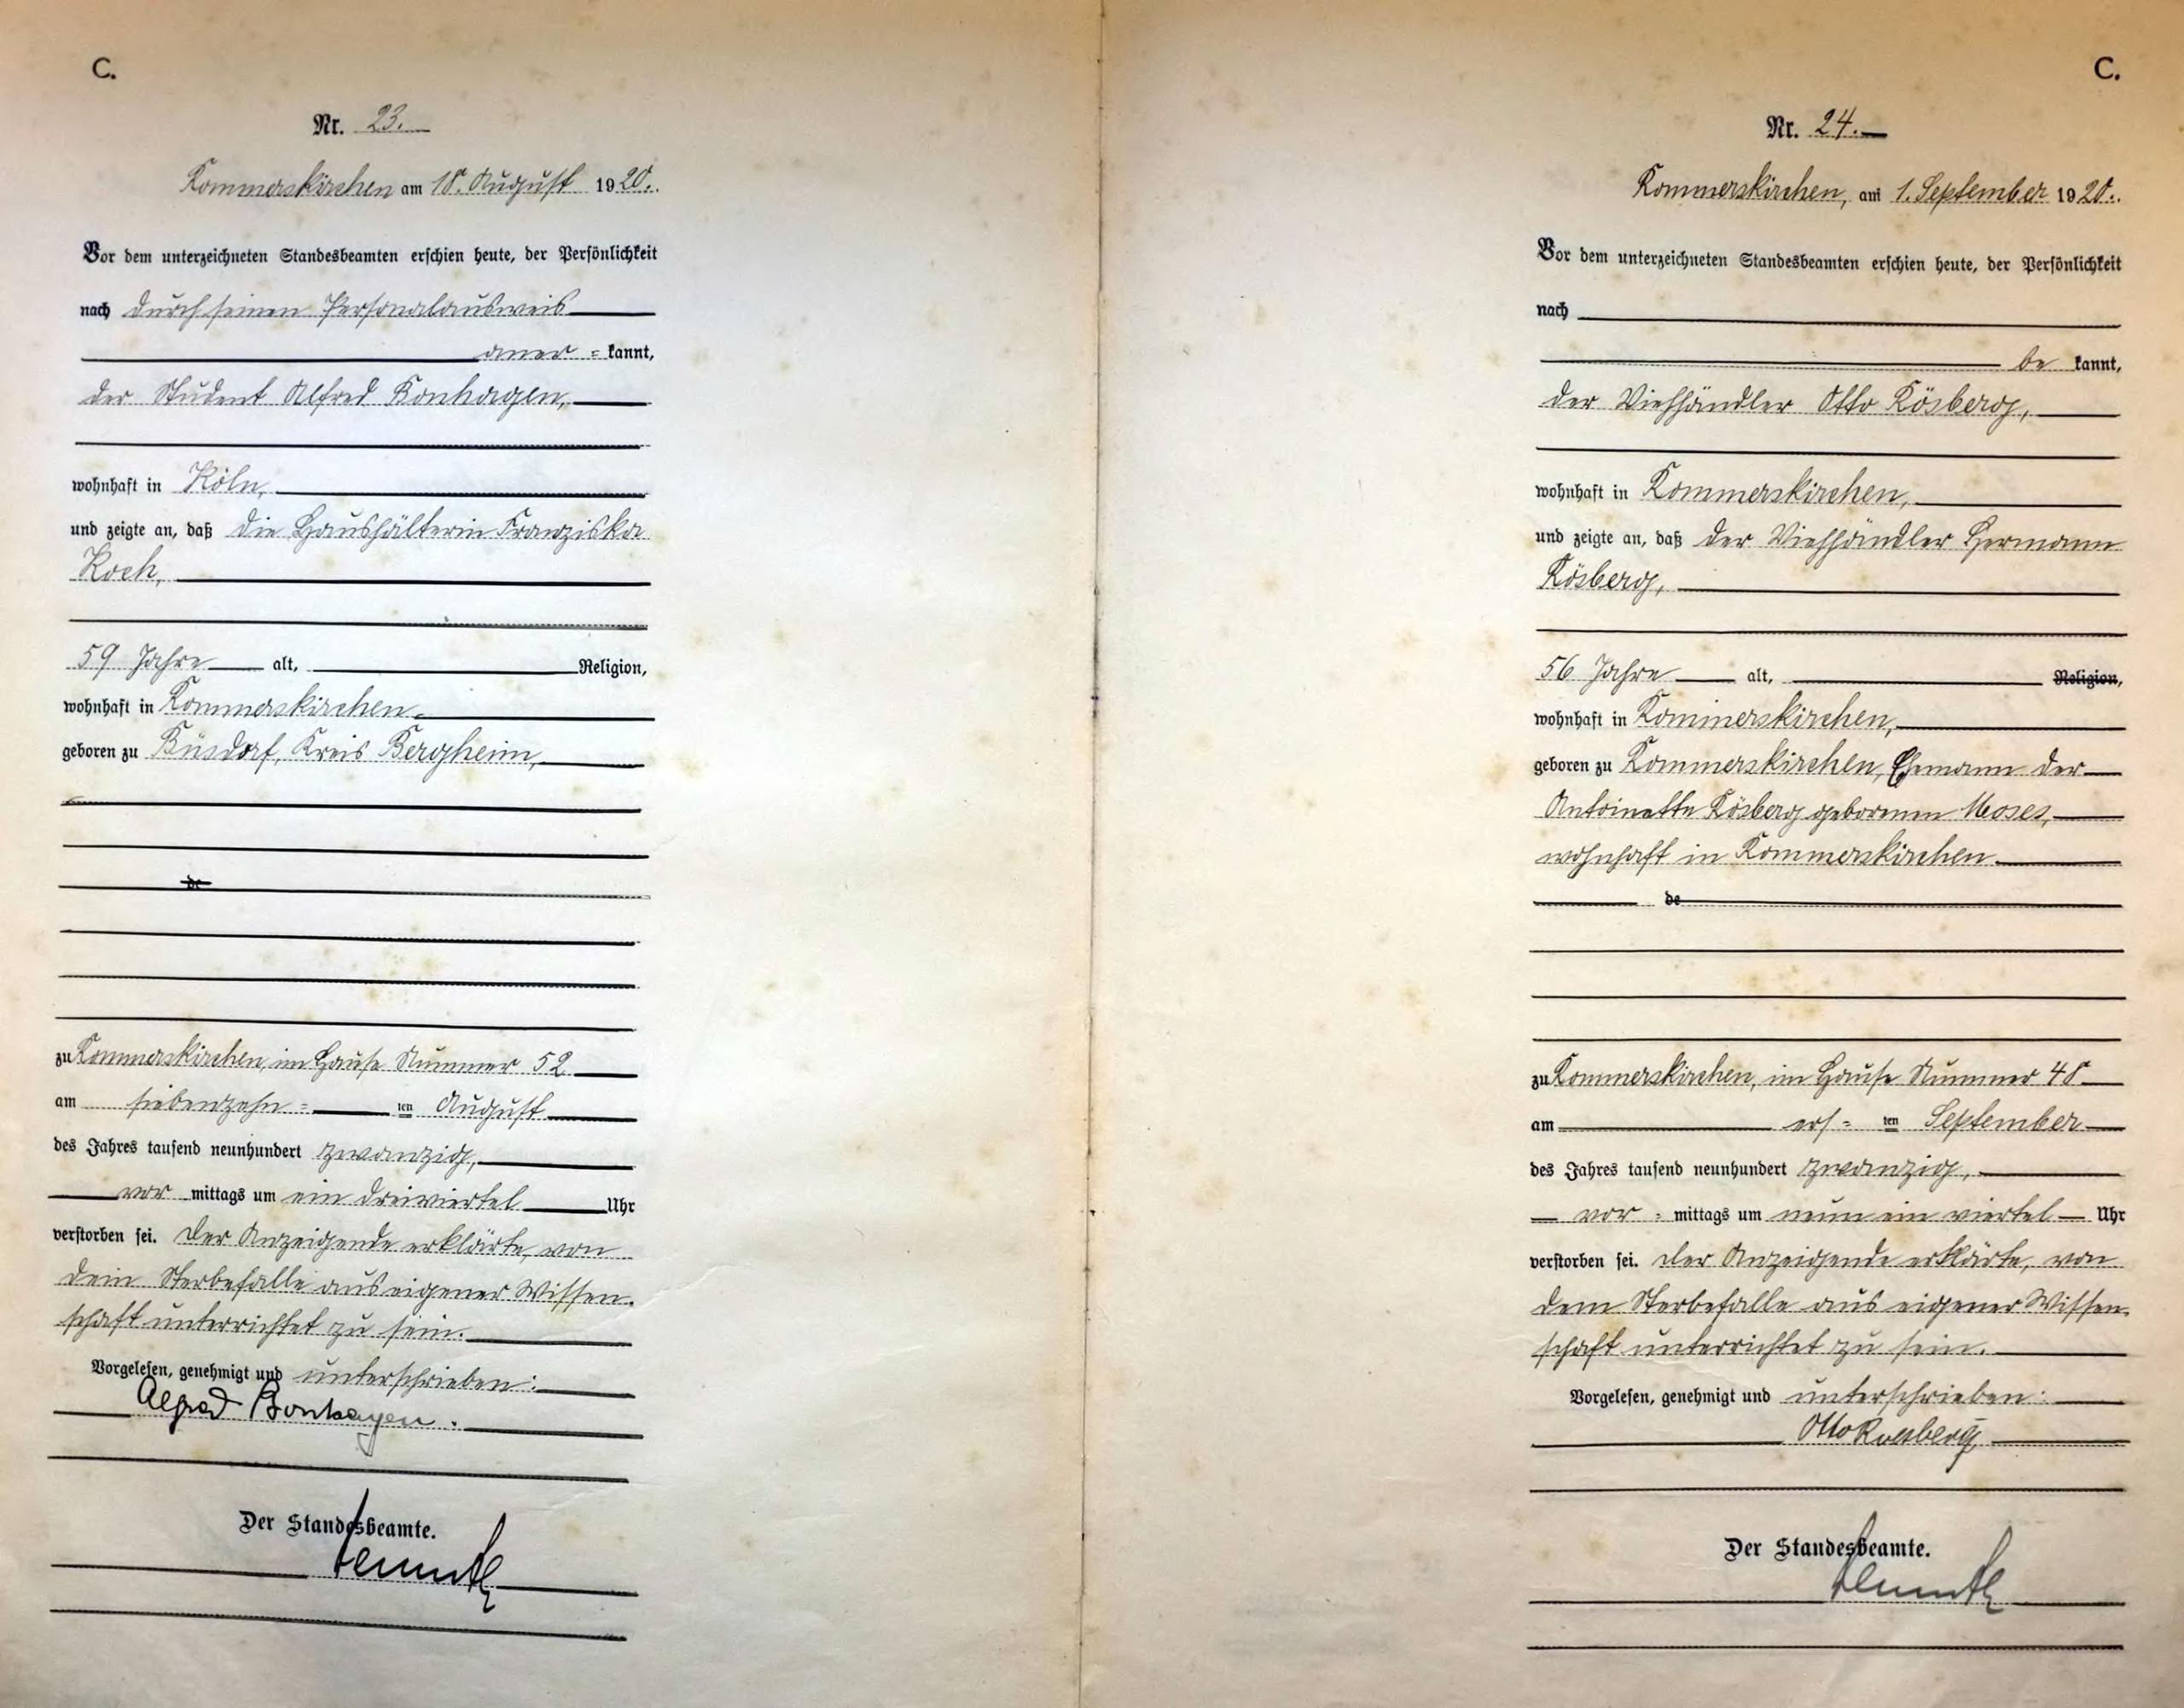 C.
Nr. 23.
Rommerskirchen am 18. August 1920.
Vor dem unterzeichneten Standesbeamten erschien heute, der Persönlichkeit
nach durch seinen Personalausweis
aner = kannt,
der Student Alfred Bonhagen,
wohnhaft in Köln,
und zeigte an, daß die Haushälterin Franziska
Koch,
59 Jahre alt, Religion,
wohnhaft in Rommerskirchen
geboren zu Büsdorf, Kreis Bergheim,
de
zu Rommerskirchen, im Hause Nummer 52
am siebenzehn = ten August
des Jahres tausend neunhundert zwanzig,
vor mittags um ein dreiviertel Uhr
verstorben sei. Der Anzeigende erklärte, von
dem Sterbefalle aus eigener Wissen-
schaft unterrichtet zu sein.
Vorgelesen, genehmigt und unterschrieben:
Alfred Bonhagen.
Der Standesbeamte.
C.
Nr. 24.
Rommerskirchen, am 1. September 1920.
Vor dem unterzeichneten Standesbeamten erschien heute, der Persönlichkeit
nach
be kannt,
der Viehhändler Otto Rösberg,
wohnhaft in Rommerskirchen,
und zeigte an, daß der Viehhändler Hermann
Rösberg,
56 Jahre alt, Religion,
wohnhaft in Rommerskirchen,
geboren zu Rommerskirchen, Ehemann der
Antoinette Rösberg geborenen Moses,
wohnhaft in Rommerskirchen
de
zu Rommerskirchen, im Hause Nummer 48
am ers = ten September
des Jahres tausend neunhundert zwanzig,
vor = mittags um neun ein viertel Uhr
verstorben sei. Der Anzeigende erklärte, von
dem Sterbefalle aus eigener Wissen-
schaft unterrichtet zu sein.
Vorgelesen, genehmigt und unterschrieben:
Otto Roesberg
Der Standesbeamte.